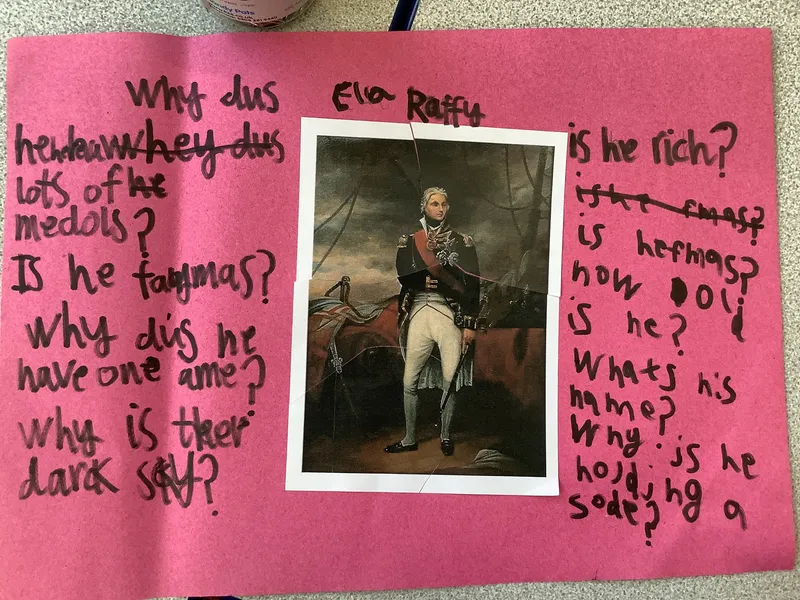 Why dus
he whey dus
lots of he
medols?
Is he faymas?
Why dus he
have one ame?
why is ther
darck sky?
Ella Raffy
is he rich?
is he fmas?
is he fmas?
how old
is he?
Whats his
name?
Why is he
holding a
sode?